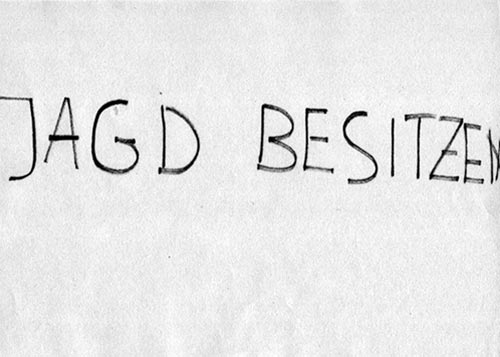 JAGD BESITZEN